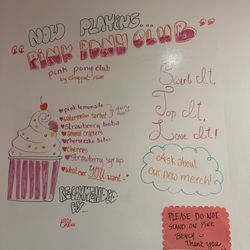 NOW PLAYING...
"PINK PONY CLUB"
pink pony club
by chappell roan
pink lemonade
watermelon sorbet
strawberry boba
animal crackers
cheesecake bites
cherries
strawberry syrup
what ever YOU want!
RECOMMENDED
BY...
Swirl It,
Top It,
Love It!
Ask about
our new merch!
PLEASE DO NOT
STAND ON PINK
BENCH
Thank you